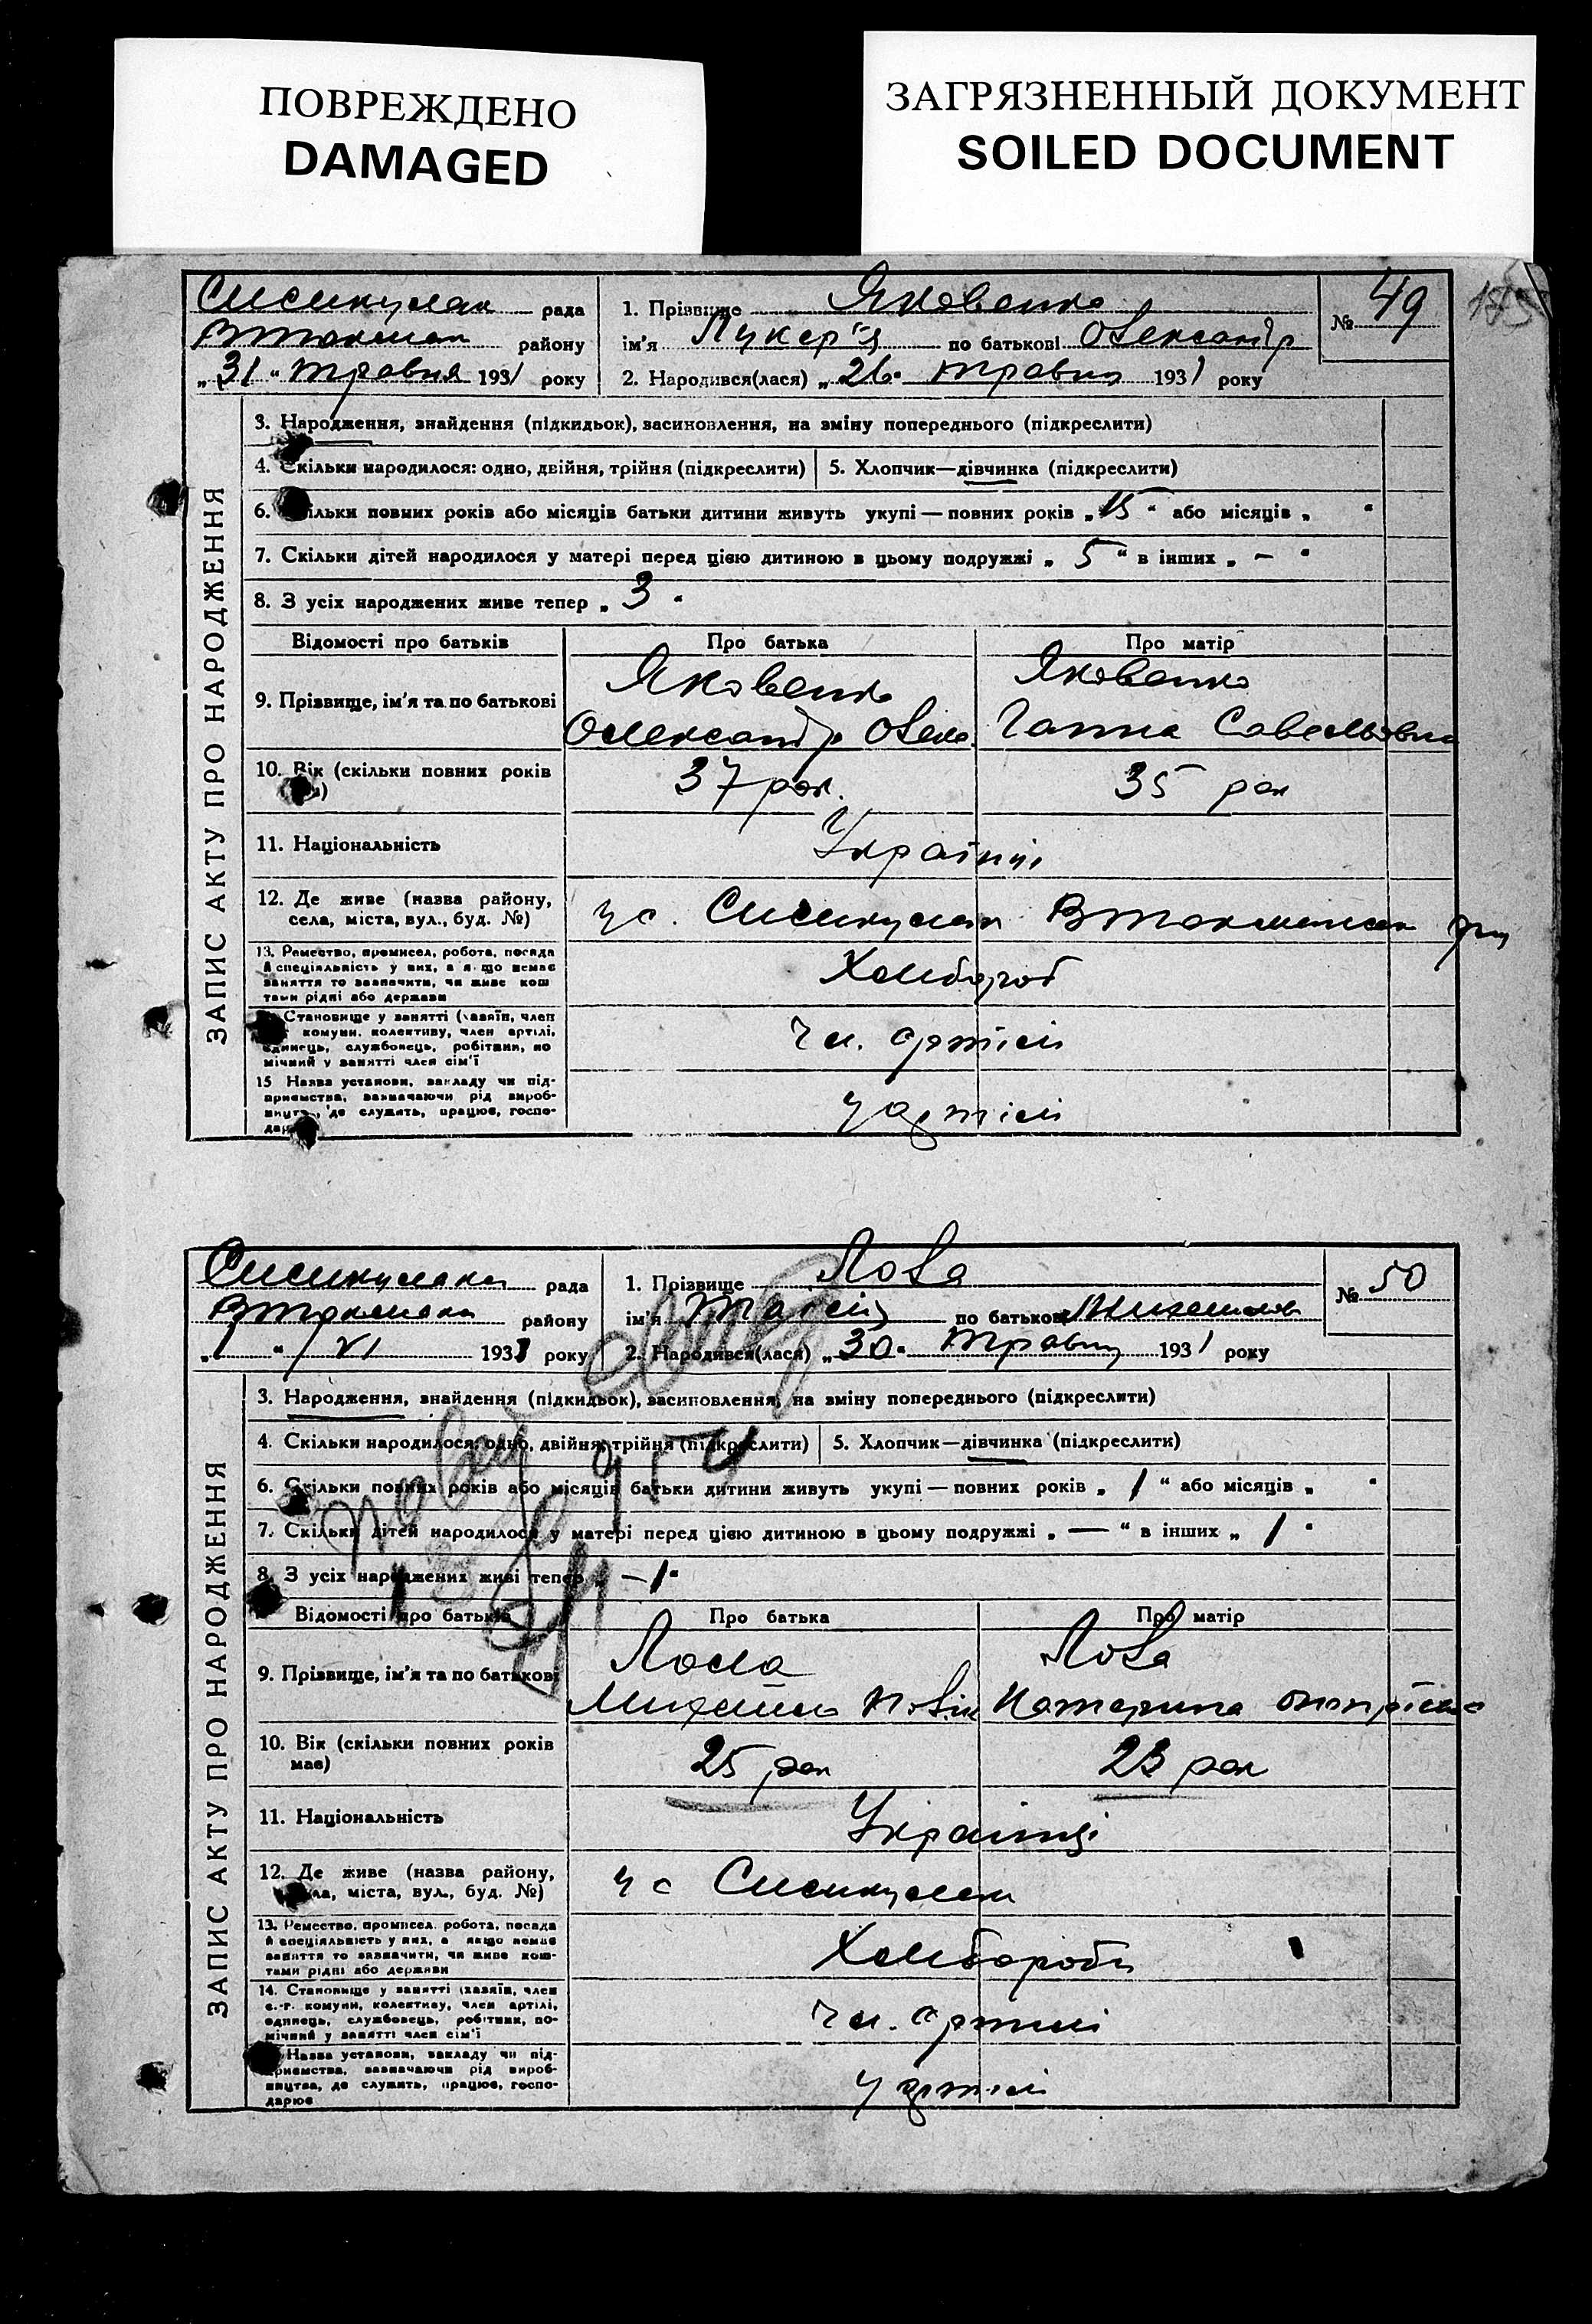 ПОВРЕЖДЕНО
DAMAGED
ЗАГРЯЗНЕННЫЙ ДОКУМЕНТ
SOILED DOCUMENT
рада
району
„31“ травня 1931 року
1. Прізвище Яковенко
ім'я Лукер'я по батькові Олександр
2. Народився(лася) „26“ травня 1931 року
№ 49
ЗАПИС АКТУ ПРО НАРОДЖЕННЯ
3. Народження, знайдення (підкидьок), засиновлення, на зміну попереднього (підкреслити)
4. Скільки народилося: одно, двійня, трійня (підкреслити)
5. Хлопчик—дівчинка (підкреслити)
6. Скільки повних років або місяців батьки дитини живуть укупі — повних років „15“ або місяців „ “
7. Скільки дітей народилося у матері перед цією дитиною в цьому подружжі „ 5 “ в інших „ — “
8. З усіх народжених живе тепер „ 3 “
Відомості про батьків
Про батька
Про матір
9. Прізвище, ім'я та по батькові
Яковенко
Олександр
Яковенко
Ганна Савельовна
10. Вік (скільки повних років
37 рок.
35 рок
11. Національність
Українці
12. Де живе (назва району,
села, міста, вул., буд. №)
у с.
13. Ремество, промисел, робота, посада
й спеціяльність у них, а якщо немає
заняття то зазначити, чи живе кош
тами рідні або держави
Хлібороб
Становище у занятті (хазяїн, член
комуни, колективу, член артілі,
одинець, службовець, робітник, по
мічний у занятті член сім'ї
чл. артілі
15 Назва установи, закладу чи під-
приємства, зазначаючи рід вироб-
ництв., де служить, працює, госпо-
у артілі
рада
району
„1“ VI 1931 року
1. Прізвище Лола
ім'я Таісія по батькові Михайлов
2. Народився(лася) „30“ травня 1931 року
№ 50
ЗАПИС АКТУ ПРО НАРОДЖЕННЯ
3. Народження, знайдення (підкидьок), засиновлення, на зміну попереднього (підкреслити)
4. Скільки народилося: одно, двійня, трійня (підкреслити)
5. Хлопчик—дівчинка (підкреслити)
6. Скільки повних років або місяців батьки дитини живуть укупі — повних років „ 1 “ або місяців „ “
7. Скільки дітей народилося у матері перед цією дитиною в цьому подружжі „ — “ в інших „ 1 “
8. З усіх народжених живі тепер „ —1 “
Відомості про батьків
Про батька
Про матір
9. Прізвище, ім'я та по батькові
Лола
Михайло
Лола
Катерина
10. Вік (скільки повних років
має)
25 рок
23 рок
11. Національність
Українці
12. Де живе (назва району,
села, міста, вул., буд. №)
у с
13. Ремество, промисел, робота, посада
й спеціяльність у них, а якщо немає
заняття то зазначити, чи живе кош-
тами рідні або держави
Хлібороби
14. Становище у занятті (хазяїн, член
с.-г. комуни, колективу, член артілі,
одинець, службовець, робітник, по-
мічний у занятті член сім'ї
чл. артілі
Назва установи, закладу чи під-
приємства, зазначаючи рід вироб-
ництва, де служить, працює, госпо-
дарює
у артілі